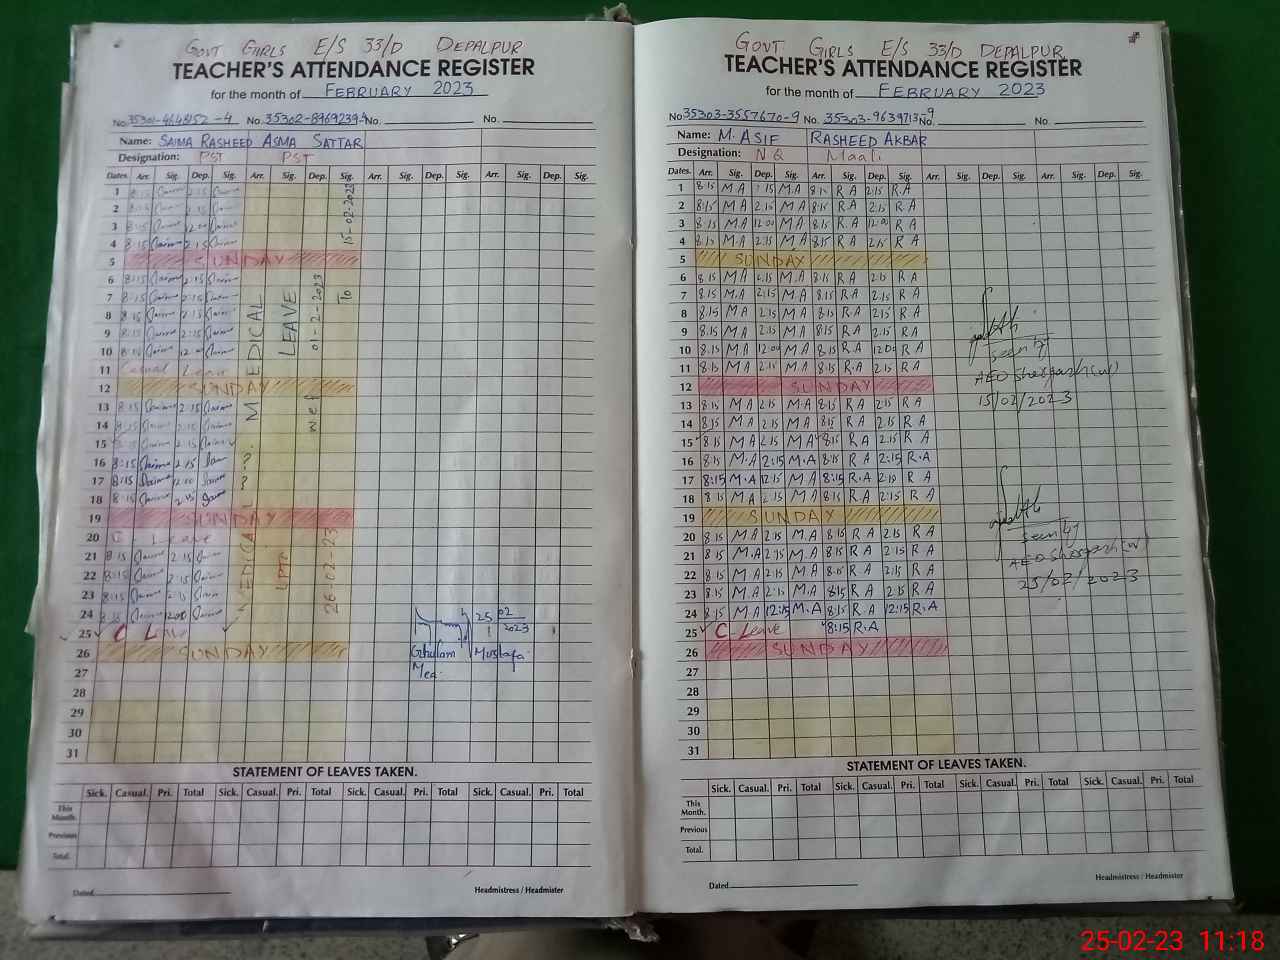 GOVT GIRLS E/S 33/D DEPALPUR
TEACHER'S ATTENDANCE REGISTER
for the month of FEBRUARY 2023
No. No. 35302-8969239 No. No.
Name: SAIMA RASHEED ASMA SATTAR
Designation: PST PST
Dates. Arr. Sig. Dep. Sig. Arr. Sig. Dep. Sig. Arr. Sig. Dep. Sig. Arr. Sig. Dep. Sig.
1 8:15 2:15
2 8:15 2:15
3 8:15 12:00
4 8:15 2:15
5 SUNDAY
6 8:15 2:15
7 8:15 2:15
8 8:15 2:15
9 8:15 2:15
10 8:15 12:00
11 Casual Leave
12 SUNDAY
13 8:15 2:15
14 8:15 2:15
15 8:15 2:15
16 8:15 2:15
17 8:15 12:00
18 8:15 2:15
19 SUNDAY
20 C - Leave
21 8:15 2:15
22 8:15 2:15
23 8:15 2:15
24 8:15 12:00
25 C Leave
26 SUNDAY
27
28
29
30
31
MEDICAL LEAVE
wef 01-2-2023 To 15-02-2023
MEDICAL L ? ?
UPTO
26-02-23
25 02 2023
Ghulam Mustafa
Mea
STATEMENT OF LEAVES TAKEN.
Sick. Casual. Pri. Total Sick. Casual. Pri. Total Sick. Casual. Pri. Total Sick. Casual. Pri. Total
This Month.
Previous
Total.
Dated
Headmistress / Headmister
GOVT GIRLS E/S 33/D DEPALPUR
TEACHER'S ATTENDANCE REGISTER
for the month of FEBRUARY 2023
No 35303-3557670-9 No. 35303-9639713 No. 9 No.
Name: M. ASIF RASHEED AKBAR
Designation: N Q Maali
Dates. Arr. Sig. Dep. Sig. Arr. Sig. Dep. Sig. Arr. Sig. Dep. Sig. Arr. Sig. Dep. Sig.
1 8:15 M A 2:15 M.A 8:15 R A 2:15 R.A
2 8:15 M A 2:15 M A 8:15 R.A 2:15 R A
3 8:15 M.A 12:00 M A 8:15 R.A 12:00 R A
4 8:15 M.A 2:15 M A 8:15 R.A 2:15 R A
5 SUNDAY
6 8:15 M A 2:15 M.A 8:15 R.A 2:15 R A
7 8:15 M.A 2:15 M.A 8:15 R.A 2:15 R A
8 8:15 M A 2:15 M.A 8:15 R.A 2:15 R A
9 8:15 M A 2:15 M.A 8:15 R.A 2:15 R A
10 8:15 M A 12:00 M.A 8:15 R.A 12:00 R A
11 8:15 M A 2:15 M.A 8:15 R.A 2:15 R A
12 SUNDAY
13 8:15 M A 2:15 M.A 8:15 R A 2:15 R A
14 8:15 M A 2:15 M A 8:15 R A 2:15 R A
15 8:15 M A 2:15 M A 8:15 R A 2:15 R A
16 8:15 M.A 2:15 M.A 8:15 R A 2:15 R.A
17 8:15 M.A 2:15 M A 8:15 R.A 2:15 R A
18 8:15 M A 2:15 M A 8:15 R A 2:15 R A
19 SUNDAY
20 8:15 M A 2:15 M.A 8:15 R A 2:15 R A
21 8:15 M.A 2:15 M.A 8:15 R A 2:15 R.A
22 8:15 M A 2:15 M A 8:15 R A 2:15 R.A
23 8:15 M A 2:15 M.A 8:15 R A 2:15 R.A
24 8:15 M A 12:15 M.A 8:15 R A 12:15 R.A
25 C-Leave 8:15 R.A
26 SUNDAY
27
28
29
30
31
Seen by
AEO
15/02/2023
Seen by
AEO
25/02/2023
STATEMENT OF LEAVES TAKEN.
Sick. Casual. Pri. Total Sick. Casual. Pri. Total Sick. Casual. Pri. Total Sick. Casual. Pri. Total
This Month.
Previous
Total.
Dated
Headmistress / Headmister
25-02-23 11:18